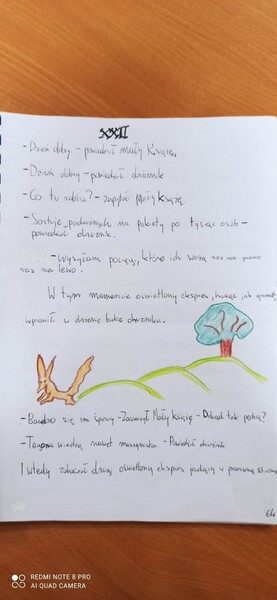 XXII
- Dzień dobry - powiedział Mały Książę.
- Dzień dobry - powiedział dróżnik
- Co tu robisz? - zapytał Mały książę
- Sortuję podróżnych na pakiety po tysiąc osób -
powiedział dróżnik.
- Wysyłam pociągi, które ich wożą raz na prawo
raz na lewo.
W tym momencie oświetlony ekspres, hucząc jak
wprawił w drżenie budkę dróżnika.
- Bardzo się im śpieszy - Zauważył Mały książę - Dokąd tak pędzą?
- Tego nie wiedzą nawet maszynista - Powiedział dróżnik
I wtedy zahuczał drugi oświetlony ekspres jadący w przeciwną stronę
64
REDMI NOTE 8 PRO
AI QUAD CAMERA